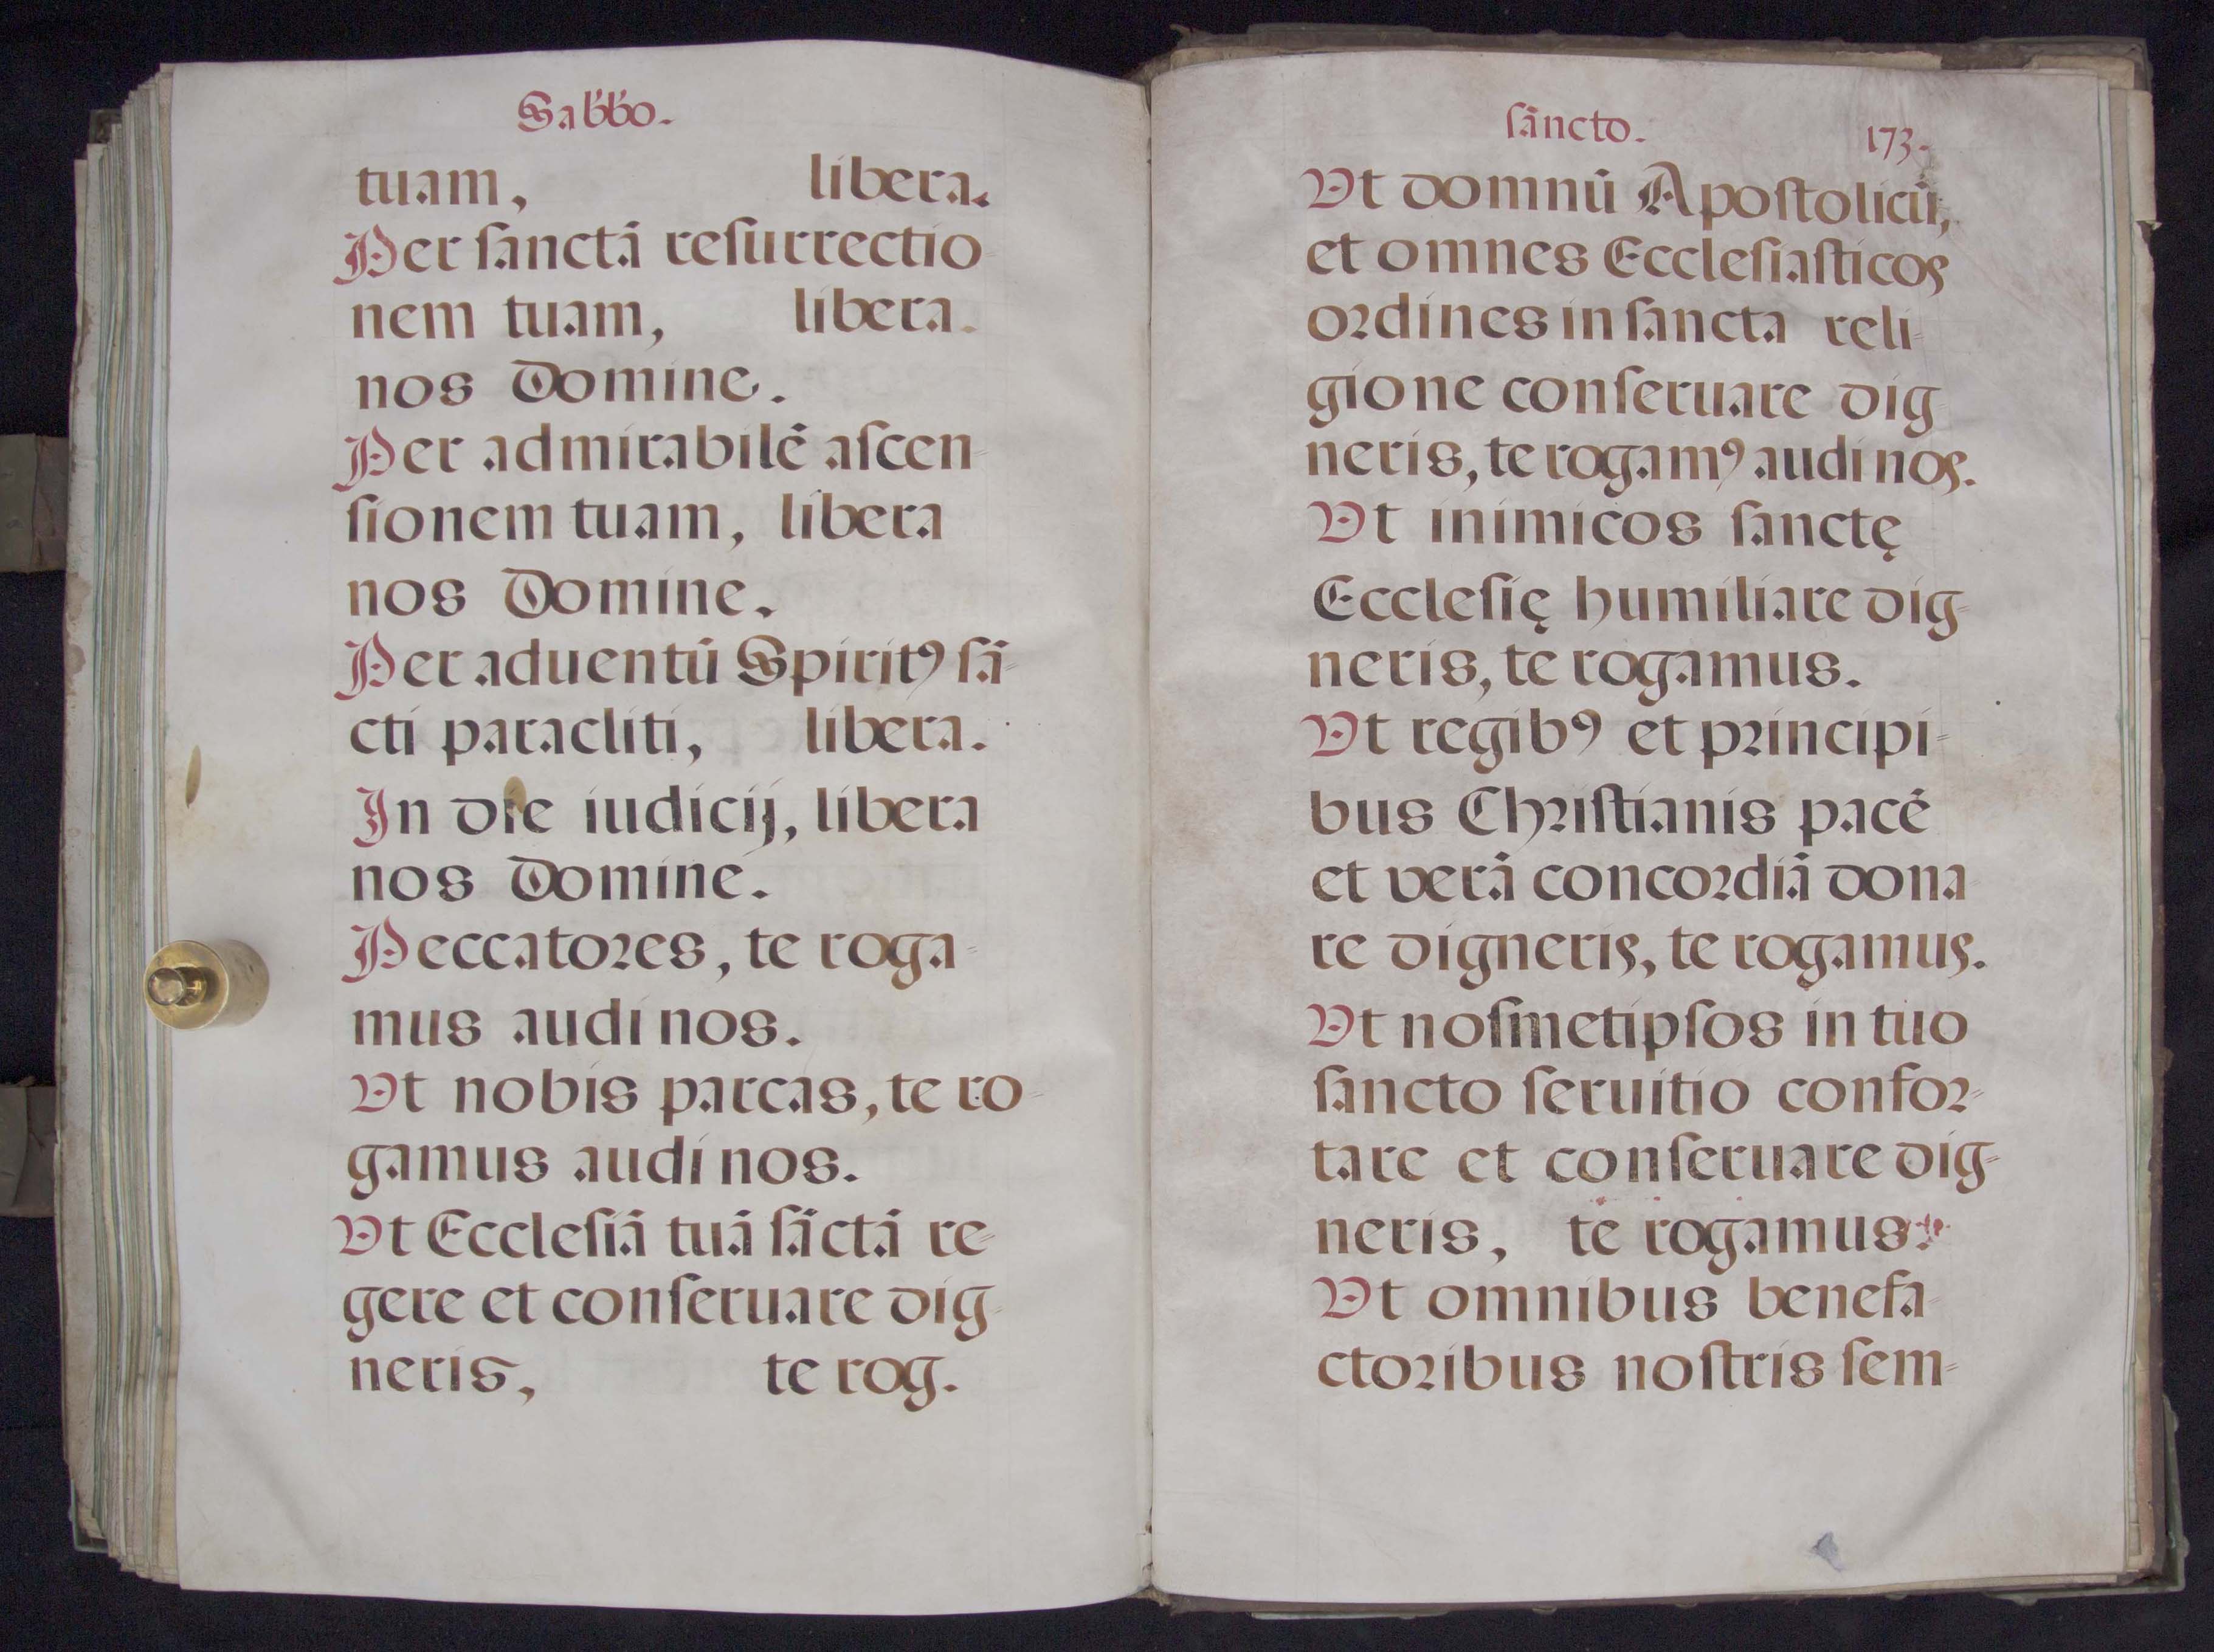 Sab̃b̃o.
tuam, libera.
Per ſanctā reſurrectio=
nem tuam, libera.
nos Domine.
Per admirabilē aſcen=
ſionem tuam, libera
nos Domine.
Per aduentū Spiritꝰ ſā=
cti paracliti, libera.
In die iudicij, libera
nos Domine.
Peccatores, te roga=
mus audi nos.
Vt nobis parcas, te ro=
gamus audi nos.
Vt Eccleſiā tuā ſāctā re=
gere et conſeruare dig=
neris, te rog.
ſāncto. 173.
Vt domnū Apoſtolicū,
et omnes Eccleſiaſticos
ordines in ſancta reli=
gione conſeruare dig=
neris, te rogamꝰ audi nos.
Vt inimicos ſanctę
Eccleſię humiliare dig=
neris, te rogamus.
Vt regibꝰ et principi=
bus Chriſtianis pacē
et verā concordiā dona=
re digneris, te rogamus.
Vt noſmetipſos in tuo
ſancto ſeruitio confor=
tare et conſeruare dig=
neris, te rogamus.
Vt omnibus benefa=
ctoribus noſtris ſem=